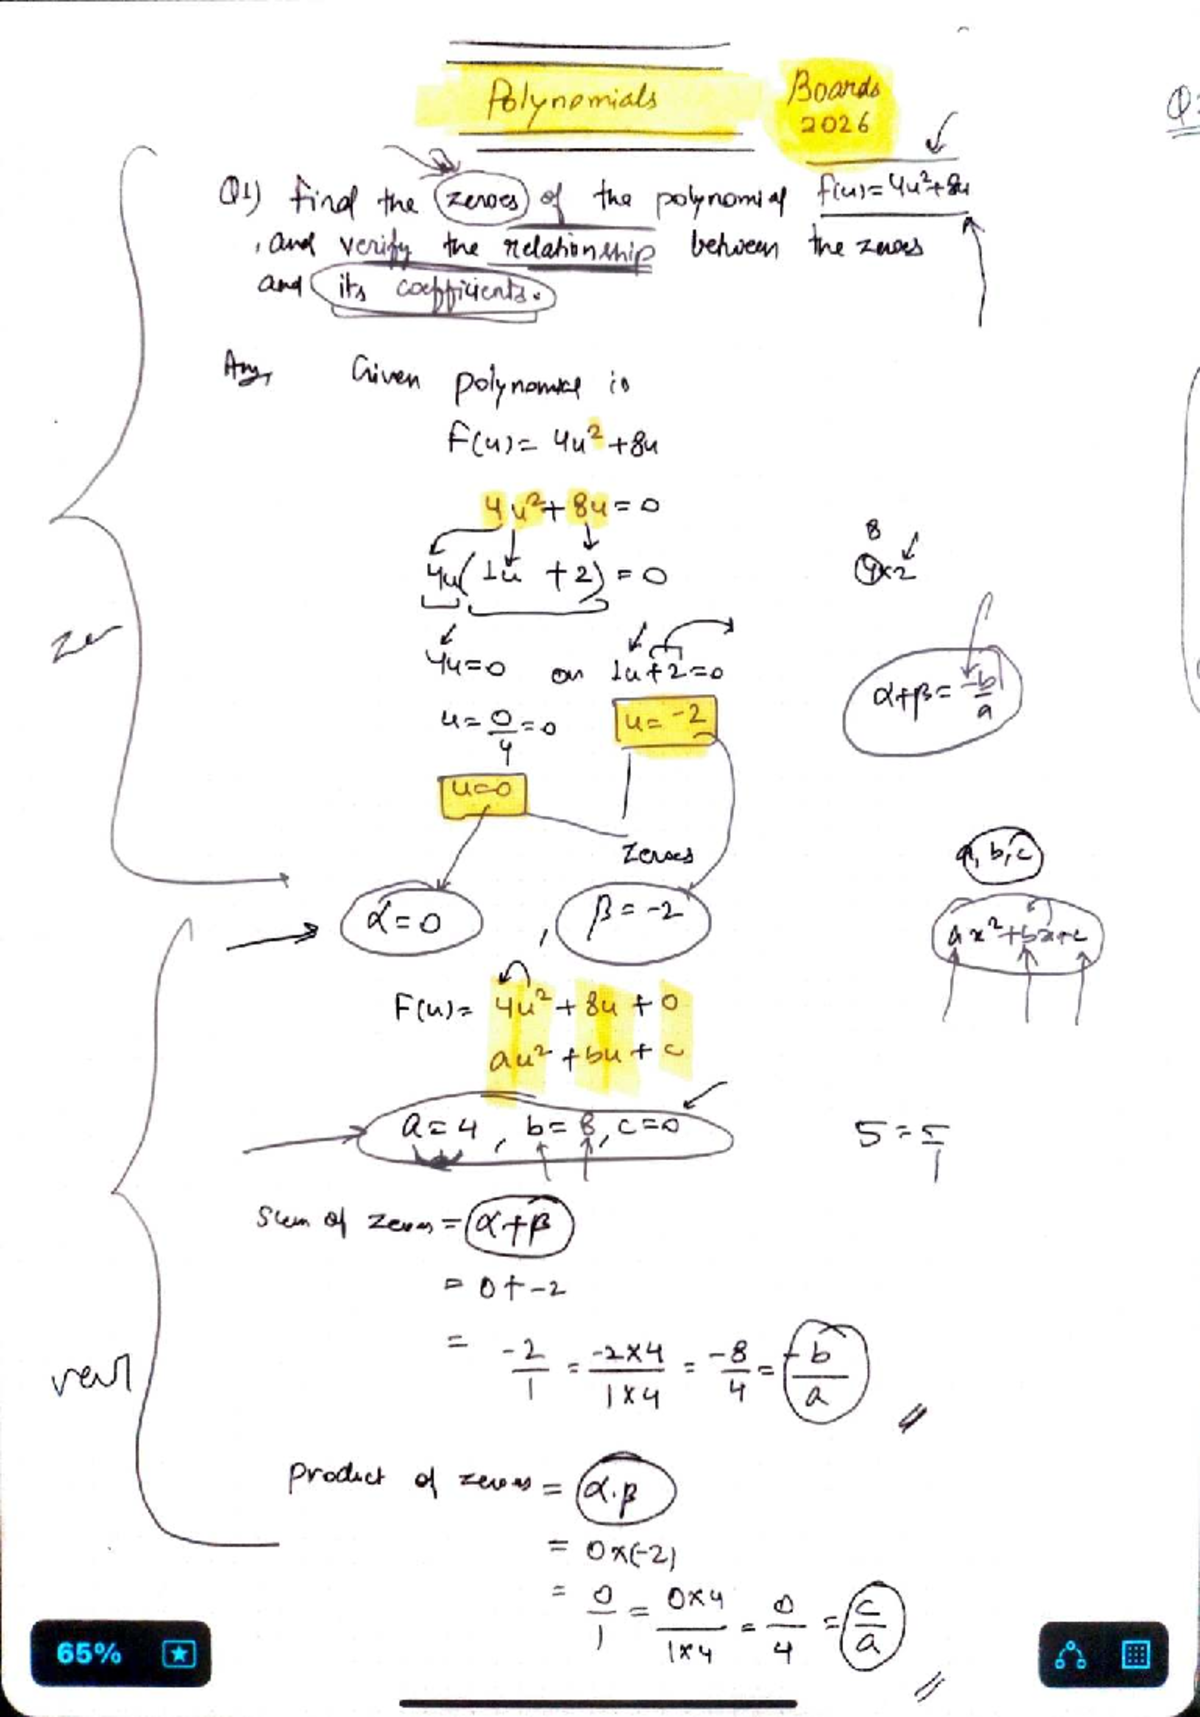 Polynomials
Boards
2026
Q1) Find the zeroes of the polynomial f(u) = 4u²+8u
, and verify the relationship between the zeroes
and its coefficients.
Ans, Given polynomial is
F(u) = 4u² + 8u
4u² + 8u = 0
4u(1u + 2) = 0
8
4×2
4u = 0 or 1u+2 = 0
α+β = -b/a
u = 0/4 = 0
u = -2
u=0
zeroes
a, b, c
α = 0 , β = -2
ax²+bx+c
F(u) = 4u² + 8u + 0
au² + bu + c
a = 4 , b = 8, c = 0
5 = 5/1
Sum of zeroes = α+β
= 0 + -2
= -2/1 = -2×4/1×4 = -8/4 = -b/a
Product of zeroes = α.β
= 0×(-2)
= 0/1 = 0×4/1×4 = 0/4 = c/a
65%